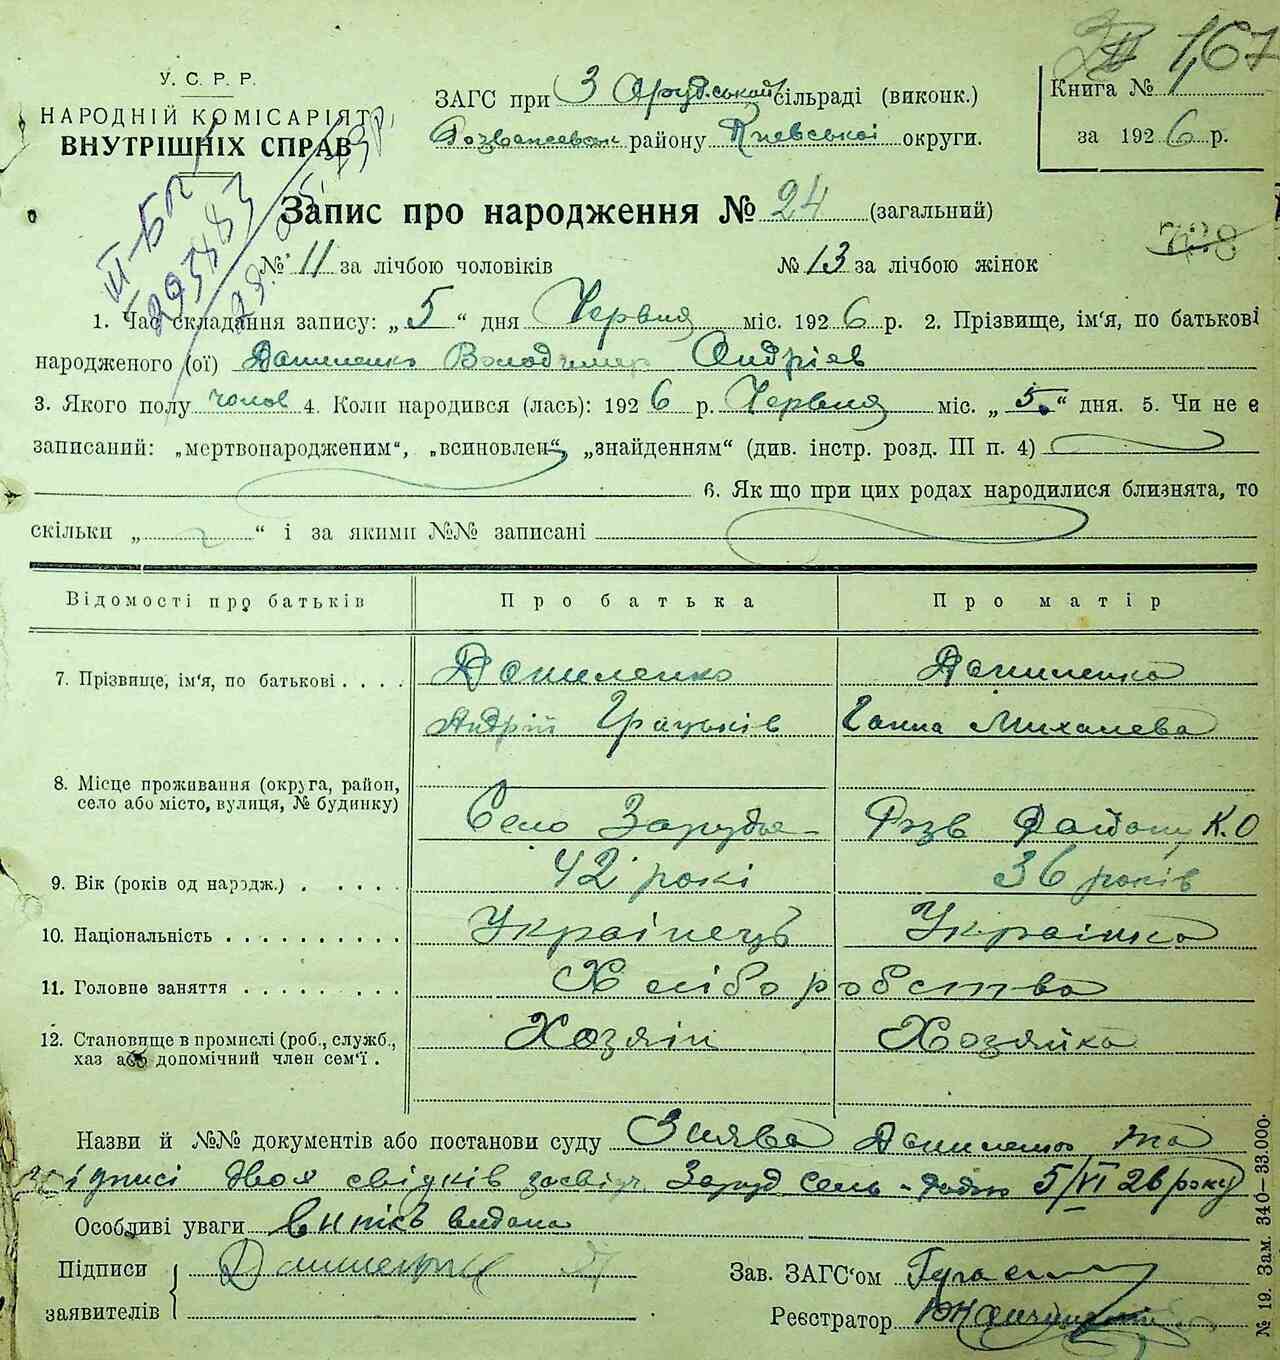 У. С. Р. Р.
НАРОДНІЙ КОМІСАРІЯТ
ВНУТРІШНІХ СПРАВ
ЗАГС при Зарудській сільраді (виконк.)
району Київської округи.
Книга № 1
за 1926 р.
167
Запис про народження № 24 (загальний)
728
№ 11 за лічбою чоловіків № 13 за лічбою жінок
1. Час складання запису: „5“ дня Червня міс. 1926 р. 2. Прізвище, ім'я, по батькові
народженого (ої) Даниленко Володимер Андріев
3. Якого полу чолов 4. Коли народився (лась): 1926 р. Червня міс. „5.“ дня. 5. Чи не є
записаний: „мертвонародженим“, „всиновлен“, „знайденням“ (див. інстр. розд. III п. 4)
6. Як що при цих родах народилися близнята, то
скільки „ “ і за якими №№ записані
Відомості про батьків Про батька Про матір
7. Прізвище, ім'я, по батькові . . . . Даниленко Даниленко
Андрій Грицьків Ганна Михалева
8. Місце проживання (округа, район,
село або місто, вулиця, № будинку) Село Зарудье Розв Району К.О
9. Вік (років од народж.) . . . . . 42 рокі 36 років
10. Національність . . . . . . . . . . Українець Українка
11. Головне заняття . . . . . . . . . Хліборобство
12. Становище в промислі (роб., служб.,
хаз або допомічний член сем'ї . Хозяін Хозяйка
Назви й №№ документів або постанови суду Заява Даниленко та
підписі двох свідків засвідч. Заруд Сель-радою 5/VI 26 року
Особливі уваги Випісь видана
Підписи
заявителів
Даниленко
Зав. ЗАГС'ом
Реєстратор
№ 19. Зам. 340—33.000.